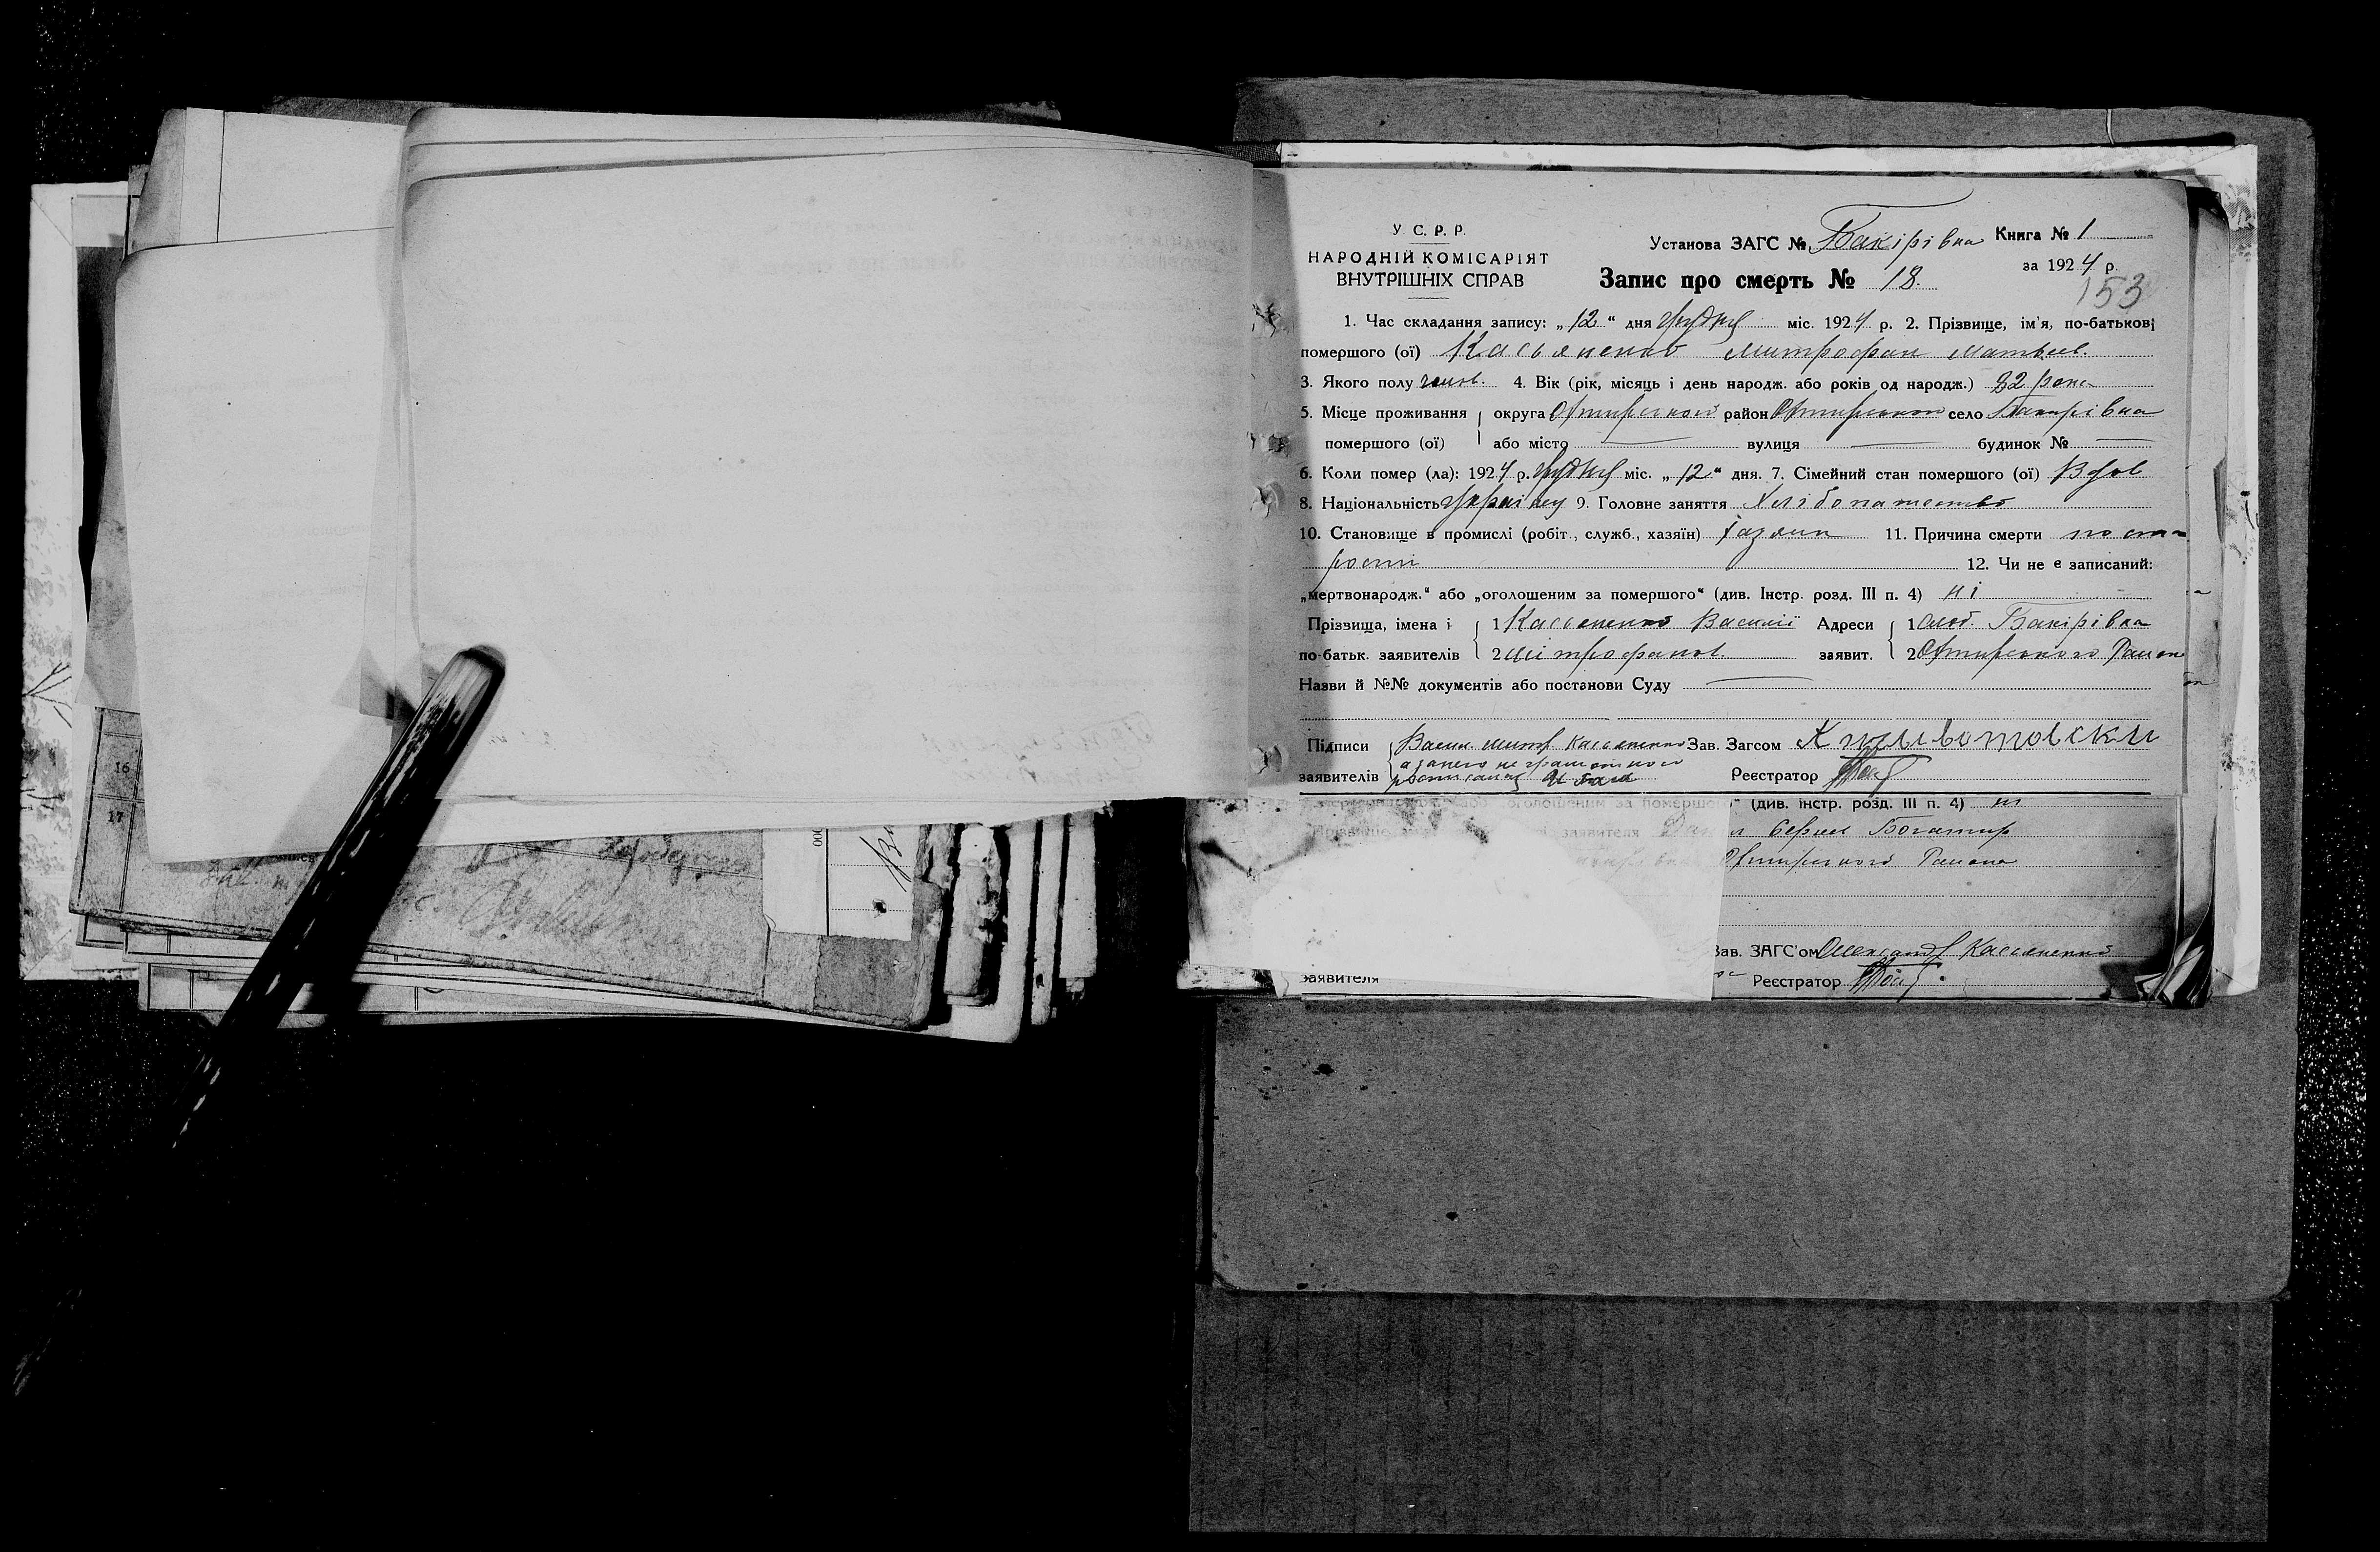 У. С. Р. Р.
НАРОДНІЙ КОМІСАРІЯТ
ВНУТРІШНІХ СПРАВ
Установа ЗАГС № Бакірівка Книга № 1
за 1924 р.
Запис про смерть № 18.
153
1. Час складання запису: „12“ дня грудня міс. 1924 р. 2. Прізвище, ім'я, по-батькові
помершого (ої) Касьяненко Митрофан Матвеев.
3. Якого полу чолов. 4. Вік (рік, місяць і день народж. або років од народж.) 82 роки
5. Місце проживання округа Охтирської район Охтирського село Бакирівка
помершого (ої) або місто — вулиця — будинок № —
6. Коли помер (ла): 1924 р. грудня міс. „12“ дня. 7. Сімейний стан помершого (ої) Вдов
8. Національність Украінец 9. Головне заняття Хліборобство
10. Становище в промислі (робіт., служб., хазяїн) хазяин 11. Причина смерти по ста-
рости 12. Чи не є записаний:
„мертвонародж.“ або „оголошеним за помершого“ (див. Інстр. розд. III п. 4) ні
Прізвища, імена і 1 Касьяненко Василий Адреси 1 слоб. Бакірівка
по-батьк. заявителів 2 Мітрофанов. заявит. 2 Охтирського Района
Назви й №№ документів або постанови Суду —
Підписи Васил. Митроф Касьяненко Зав. Загсом
а за него неграмотного
заявителів росписался Реєстратор
оголошеним за помершого“ (див. Інстр. розд. III п. 4) ні
заявителя Сергеев Богатир
Охтирского Района
Зав. ЗАГС'ом Олександр Касьяненко
заявителя Реєстратор
16
17